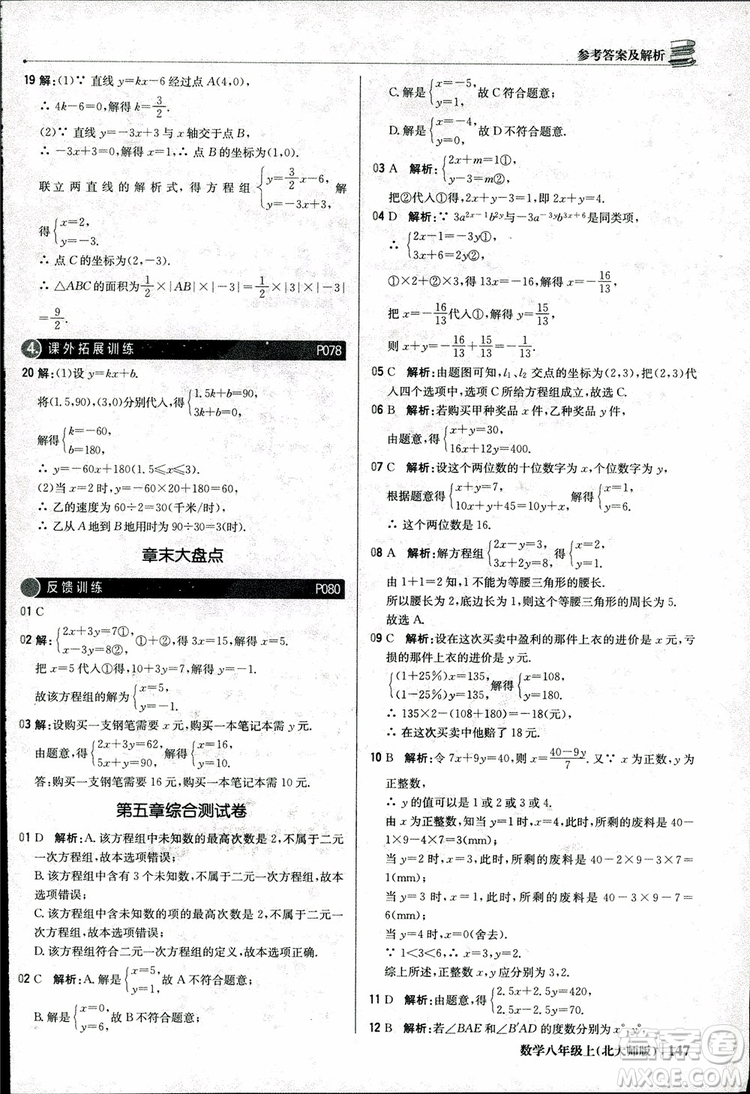 参考答案及解析
19 解:(1)∵ 直线 y=kx-6 经过点 A(4,0),
∴ 4k-6=0,解得 k=3/2.
(2)∵ 直线 y=-3x+3 与 x 轴交于点 B,
∴ -3x+3=0,解得 x=1.
∴ 点 B 的坐标为(1,0).
联立两直线的解析式,得方程组{y=3/2x-6, y=-3x+3, 解
得{x=2, y=-3.
∴ 点 C 的坐标为(2,-3).
∴ △ABC 的面积为1/2×|AB|×|-3|=1/2×|3|×|-3|
=9/2.
4. 课外拓展训练 P078
20 解:(1)设 y=kx+b.
将(1.5,90),(3,0)分别代入,得{1.5k+b=90, 3k+b=0,
解得{k=-60, b=180,
∴ y=-60x+180(1.5≤x≤3).
(2)当 x=2 时,y=-60×2+180=60.
∴ 乙的速度为 60÷2=30(千米/时),
∴ 乙从 A 地到 B 地用时为 90÷30=3(时).
章末大盘点
反馈训练 P080
01 C
02 解:{2x+3y=7①, x-3y=8②, ①+②,得 3x=15.解得 x=5.
把 x=5 代入①得,10+3y=7,解得 y=-1.
故该方程组的解为{x=5, y=-1.
03 解:设购买一支钢笔需要 x 元,购买一本笔记本需 y 元.
由题意,得{2x+3y=62, 5x+y=90, 解得{x=16, y=10.
答:购买一支钢笔需要 16 元,购买一本笔记本需 10 元.
第五章综合测试卷
01 D 解析:A.该方程组中未知数的最高次数是 2,不属于二元
一次方程组,故本选项错误;
B.该方程组中含有 3 个未知数,不属于二元一次方程组,故本
选项错误;
C.该方程组中含未知数的项的最高次数为 2,不属于二元一次
方程组,故本选项错误;
D.该方程组符合二元一次方程组的定义,故本选项正确.
02 C 解析:A.解是{x=5, y=1, 故 A 不符合题意;
B.解是{x=0, y=6, 故 B 不符合题意;
C.解是{x=-5, y=1, 故 C 符合题意;
D.解是{x=-4, y=0, 故 D 不符合题意.
03 A 解析:{2x+m=1①, y-3=m②,
把②代入①得,2x+y-3=1,即 2x+y=4.
04 D 解析:∵ 3a²ˣ⁻¹b²与-3a⁻³ʸb³ˣ⁺⁶是同类项,
∴ {2x-1=-3y①, 3x+6=2y②,
①×2+②×3,得 13x=-16,解得 x=-16/13.
把 x=-16/13代入①,得 y=15/13,
则 x+y=-16/13+15/13=-1/13.
05 C 解析:由题图可知,l₁、l₂ 交点的坐标为(2,3),把(2,3)代
入四个选项中,选项 C 给出方程组成立,故选 C.
06 B 解析:若购买甲种奖品 x 件,乙种奖品 y 件,
由题意,得{x+y=30, 16x+12y=400.
07 C 解析:设这个两位数的十位数字为 x,个位数字为 y,
根据题意,得{x+y=7, 10x+y+45=10y+x, 解得{x=1, y=6.
∴ 这个两位数是 16.
08 A 解析:解方程组{2x-y=3, 3x+2y=8, 得{x=2, y=1.
由 1+1=2,知不能构成等腰三角形的腰.
所以腰长为 2,底边长为 1,能构成等腰三角形.
故选 A.
09 C 解析:设在这次买卖中盈利的那件上衣的进价是 x 元,亏
损的那件上衣的进价是 y 元,
{(1+25%)x=135, (1-25%)y=135, 解得{x=108, y=180.
∴ 135×2-(108+180)=-18(元).
∴ 在这次买卖中他赔了 18 元.
10 B 解析:令 7x+9y=40,则 x=(40-9y)/7.又∵ x 为正整数,y 为
正整数,
∴ y 的值可以是 1 或 2 或 3 或 4.
由 x 为正整数,得当 y=1 时,x=4,此时,所剩的废料是 40-
1×9-4×7=3(mm);
当 y=2 时,x=3,此时,所剩的废料是 40-2×9-3×7=
1(mm);
当 y=3 时,x=1,此时,所剩的废料是 40-3×9-7=6(mm);
当 y=4 时,x=0(舍去).
∵ 1<3<6,
综上所述,正整数 x=3,y=2.
11 D 解析:由题意,得{2.5x+2.5y=420, 2.5x-2.5y=70.
12 B 解析:若∠BAE 和∠B′AD 的度数分别为 x°,y°,
数学八年级上(北大师版) 147